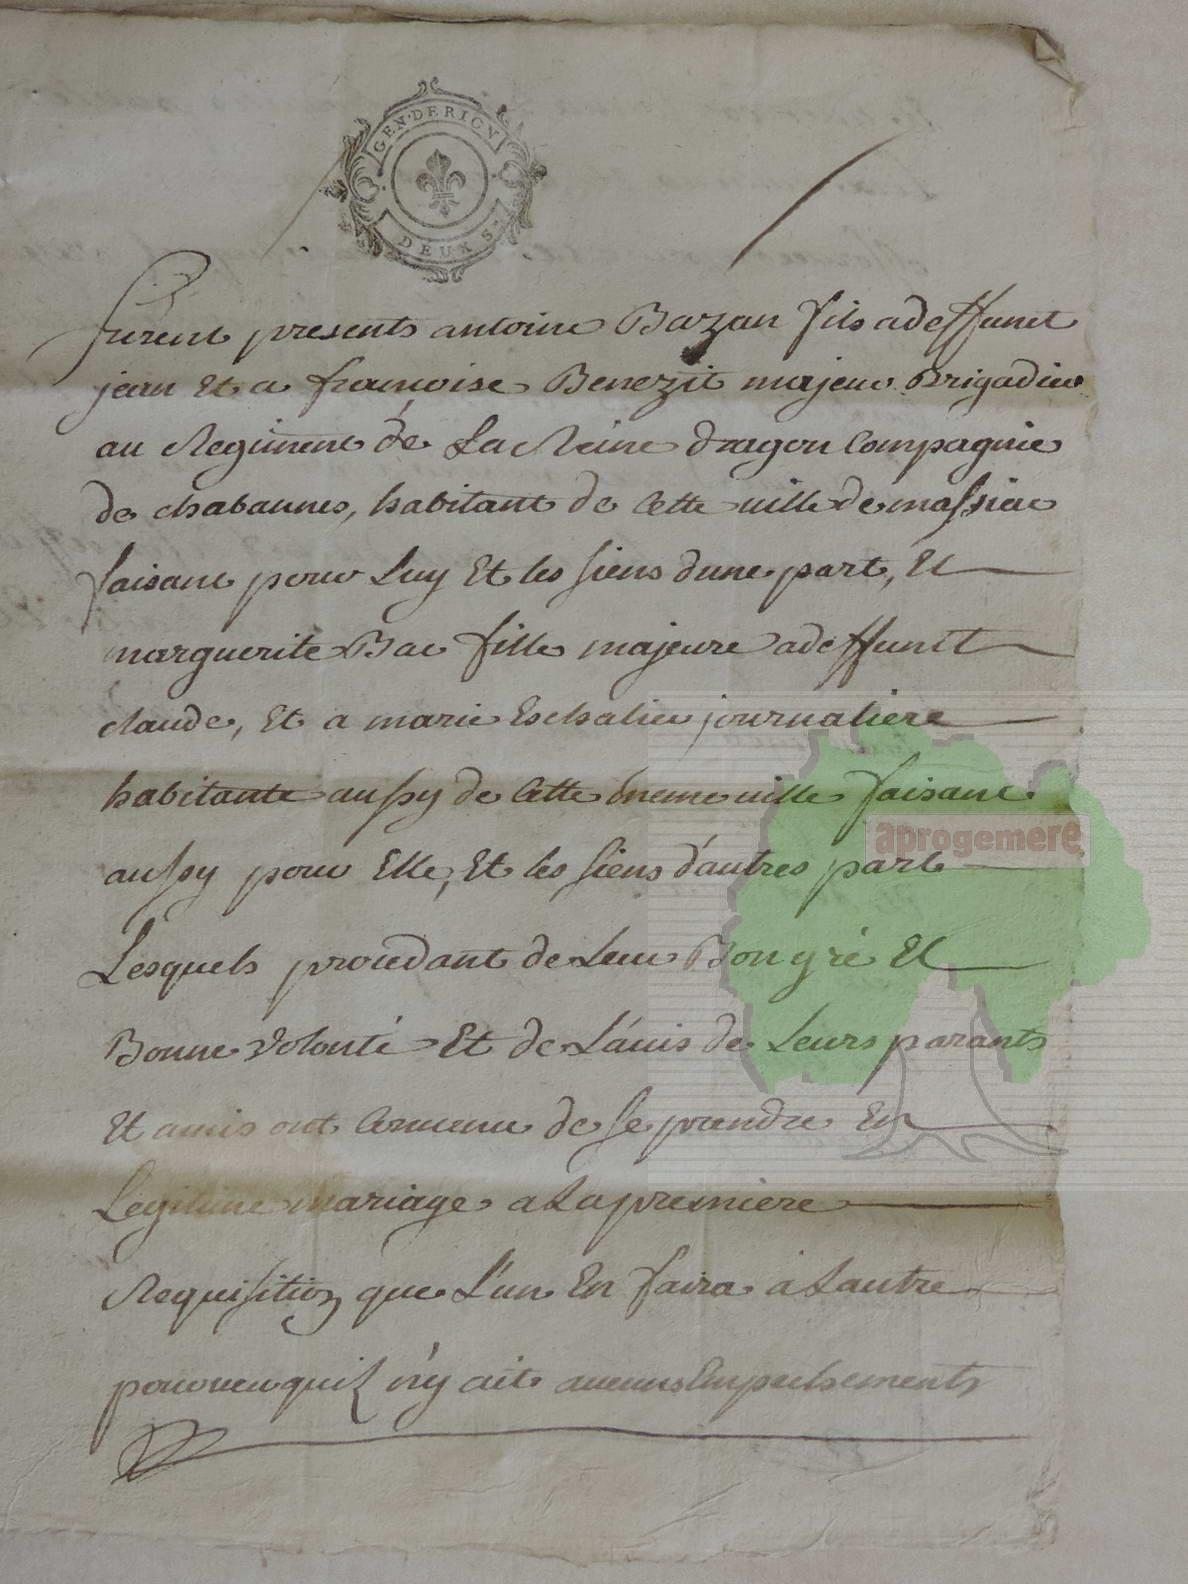 GEN. DE RIOM
DEUX S.
furent presents antoine Bazan fils a deffunct
jean Et a francoise Benezit majeur Brigadier
au Regiment de La Reine dragon Compagnie
de chabannes, habitant de Cette ville de massiac
faisant pour Luy Et les siens dune part, Et
marguerite Bac fille majeure a deffunct
claude, Et a marie Eschalier journaliere
habitante aussy de Cette meme ville faisant
aussy pour Elle, Et les siens d'autres part
Lesquels procedant de Leur Bon gré Et
Bonne volonté Et de L'avis de Leurs parants
Et amis ont Convenu de se prendre En
Legitime mariage a La premiere
Requisition que L'un En faira à Lautre
pourveu quil n'y ait aucuns Empechements
aprogemere